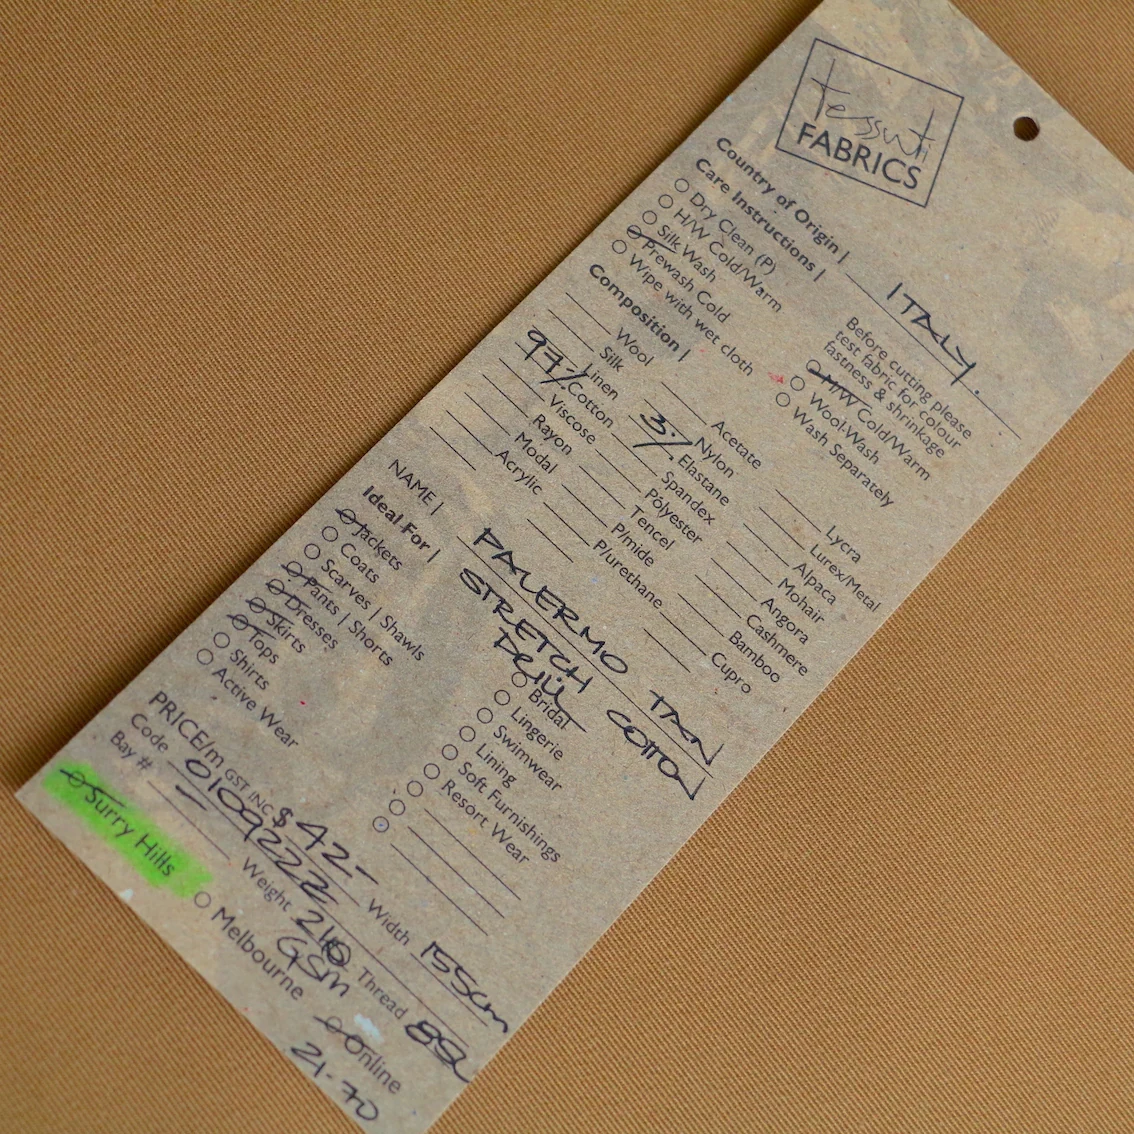 tessuti
FABRICS
Country of Origin | ITALY.
Care Instructions |
Dry Clean (P)
H/W Cold/Warm
Silk Wash
Prewash Cold
Wipe with wet cloth
Before cutting please
test fabric for colour
fastness & shrinkage
H/W Cold/Warm
Wool-Wash
Wash Separately
Composition |
Wool
Silk
Linen
97% Cotton
Viscose
Rayon
Modal
Acrylic
Acetate
Nylon
3% Elastane
Spandex
Polyester
Tencel
P/mide
P/urethane
Lycra
Lurex/Metal
Alpaca
Mohair
Angora
Cashmere
Bamboo
Cupro
NAME | PALERMO TAN
STRETCH COTTON
DRILL
Ideal For |
Jackets
Coats
Scarves | Shawls
Pants | Shorts
Dresses
Skirts
Tops
Shirts
Active Wear
Bridal
Lingerie
Swimwear
Lining
Soft Furnishings
Resort Wear
PRICE/m GST INC $42- Width 155cm
Code 0109222 Weight GSM Thread
Bay # -
Surry Hills
Melbourne
Online
21.70